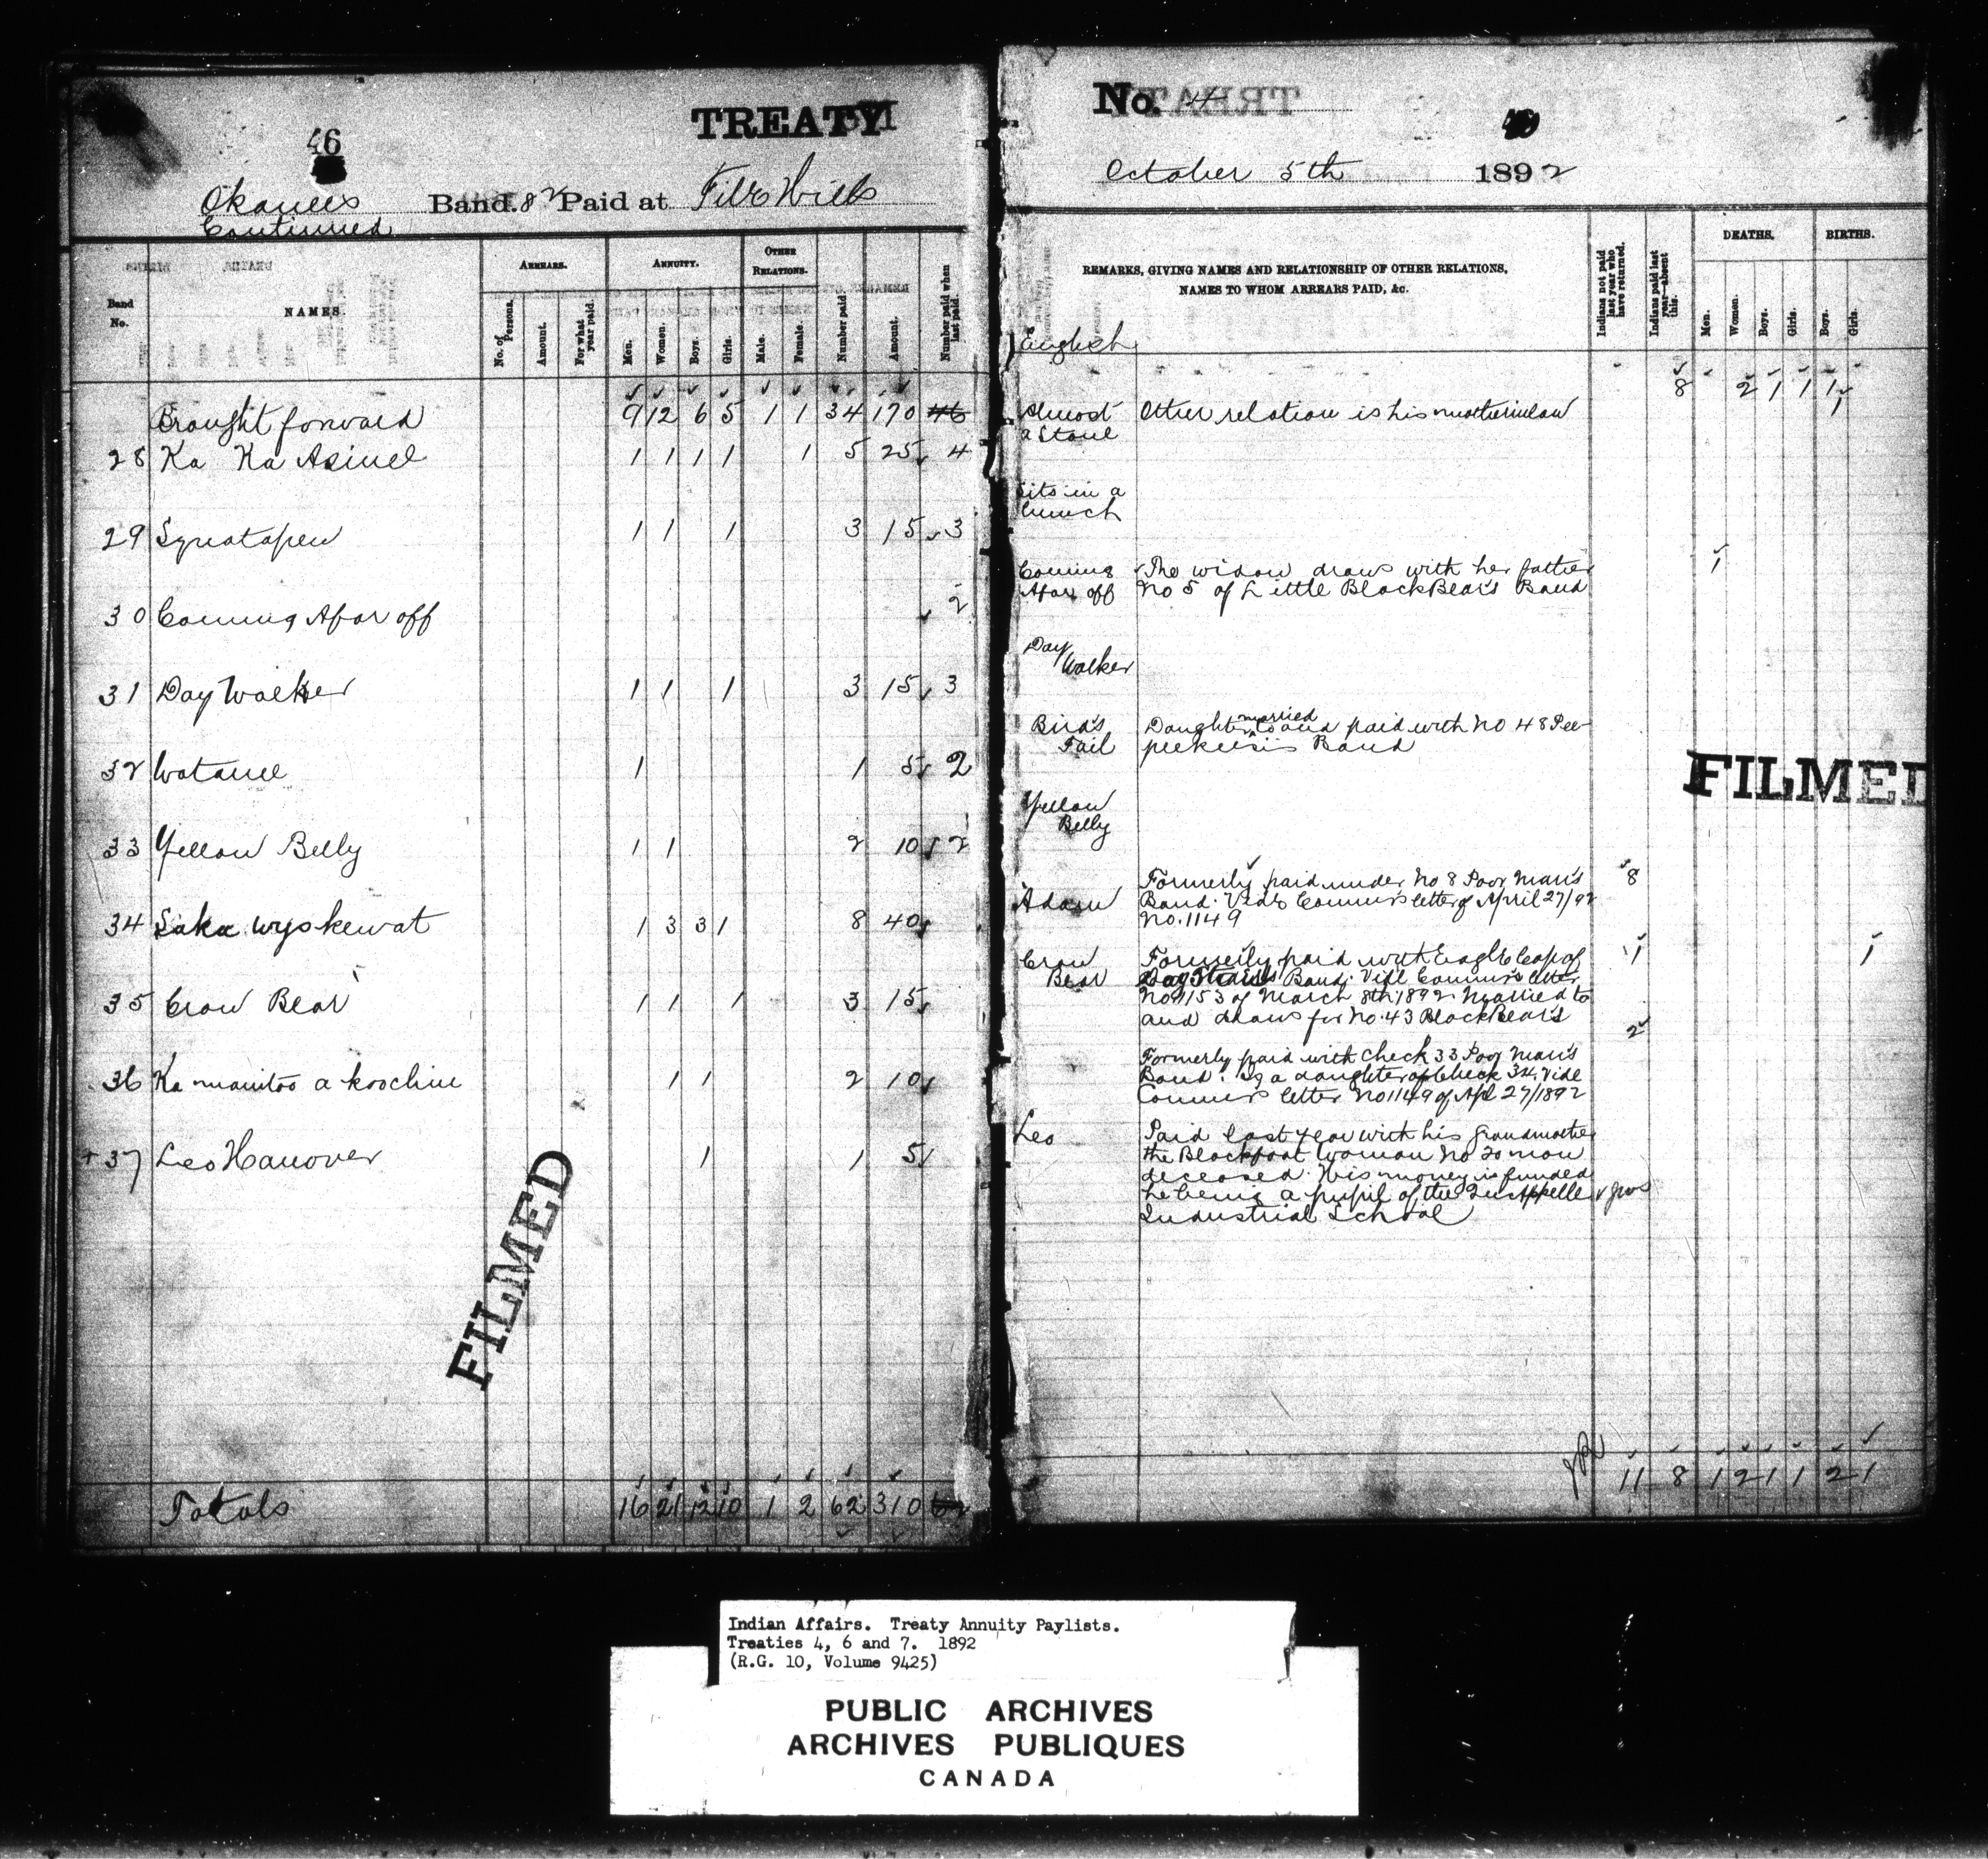 46
TREATY
Okanees Band. 82 Paid at File Hills
Continued
Band No.
NAMES.
ARREARS.
No. of Persons.
Amount.
For what year paid.
ANNUITY.
Men.
Women.
Boys.
Girls.
OTHER RELATIONS.
Male.
Female.
Number paid
Amount.
Number paid when last paid.
Brought forward 9 12 6 5 1 1 34 170 46
28 Ka Ka Asinel 1 1 1 1 1 5 25 4
29 Squatapew 1 1 1 3 15 3
30 Coming Afar off 2
31 Day Walker 1 1 1 3 15 3
32 Watanee 1 1 5 2
33 Yellow Belly 1 1 2 10 2
34 Saka wyskewat 1 3 3 1 8 40
35 Crow Bear 1 1 1 3 15
36 Ka manitoo a koochin 1 1 2 10
+ 37 Leo Hanover 1 1 5
FILMED
Totals 16 21 12 10 1 2 62 310 62
No. 4
October 5th 1892
REMARKS, GIVING NAMES AND RELATIONSHIP OF OTHER RELATIONS,
NAMES TO WHOM ARREARS PAID, &c.
Indians not paid last year who have returned.
Indians paid last year—absent this.
DEATHS.
Men.
Women.
Boys.
Girls.
BIRTHS.
Boys.
Girls.
English
8 2 1 1 1
Almost a Stone
Other relation is his motherinlaw 1
Sits in a bunch
Coming Afar off
The widow draws with her father 1
No 5 of Little Black Bear's Band
Day Walker
Bird's Tail
Daughter married to and paid with No 48 Pee
peekeesis Band
FILMED
Yellow Belly
Adam
Formerly paid under No 8 Poor Man's 8
Band. Vide Commrs letter of April 27/92
No. 1149
Crow Bear
Formerly paid with Eagle Cap of 1 1
Day Star's Band. Vide Commrs letter
No 1153 of March 8th 1892. Married to
and draws for No. 43 Black Bear's
2
Formerly paid with check 33 Poor Man's
Band. Is a daughter of Check 34. Vide
Commrs letter No 1149 of Apl 27/1892
Leo
Paid last year with his grandmother
the Blackfoot woman No 20 now
deceased. His money is funded
he being a pupil of the Qu'Appelle
Industrial School
11 8 1 2 1 1 2 1
Indian Affairs. Treaty Annuity Paylists.
Treaties 4, 6 and 7. 1892
(R.G. 10, Volume 9425)
PUBLIC ARCHIVES
ARCHIVES PUBLIQUES
CANADA